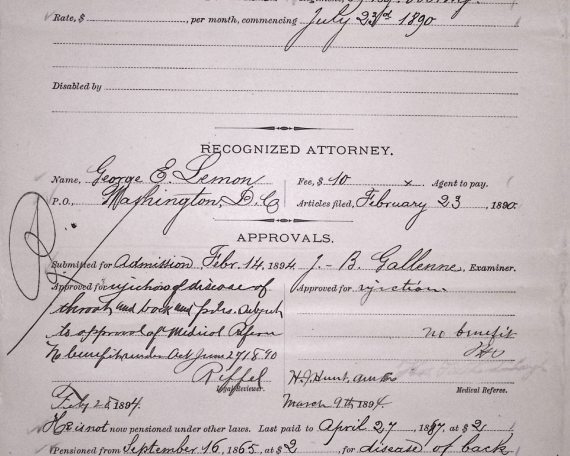 Rate, $ , per month, commencing July 23rd 1890
Disabled by
RECOGNIZED ATTORNEY.
Name, George E. Lemon Fee, $ 10 x Agent to pay.
P.O., Washington, D.C. Articles filed, February 23, 1890.
APPROVALS.
Submitted for Admission, Febr. 14, 1894 J. B. Gallenne, Examiner.
Approved for rejection of disease of Approved for rejection
throat and back and subject
to approval of Medical Referee no benefit
No benefit under Act June 27 1890
Riffel H. J. Hunt
Legal Reviewer. Medical Referee.
Feby 28, 1894. March 9th 1894.
He is not now pensioned under other laws. Last paid to April 27, 1887, at $ 2
Pensioned from September 16, 1865, at $ 2, for disease of back